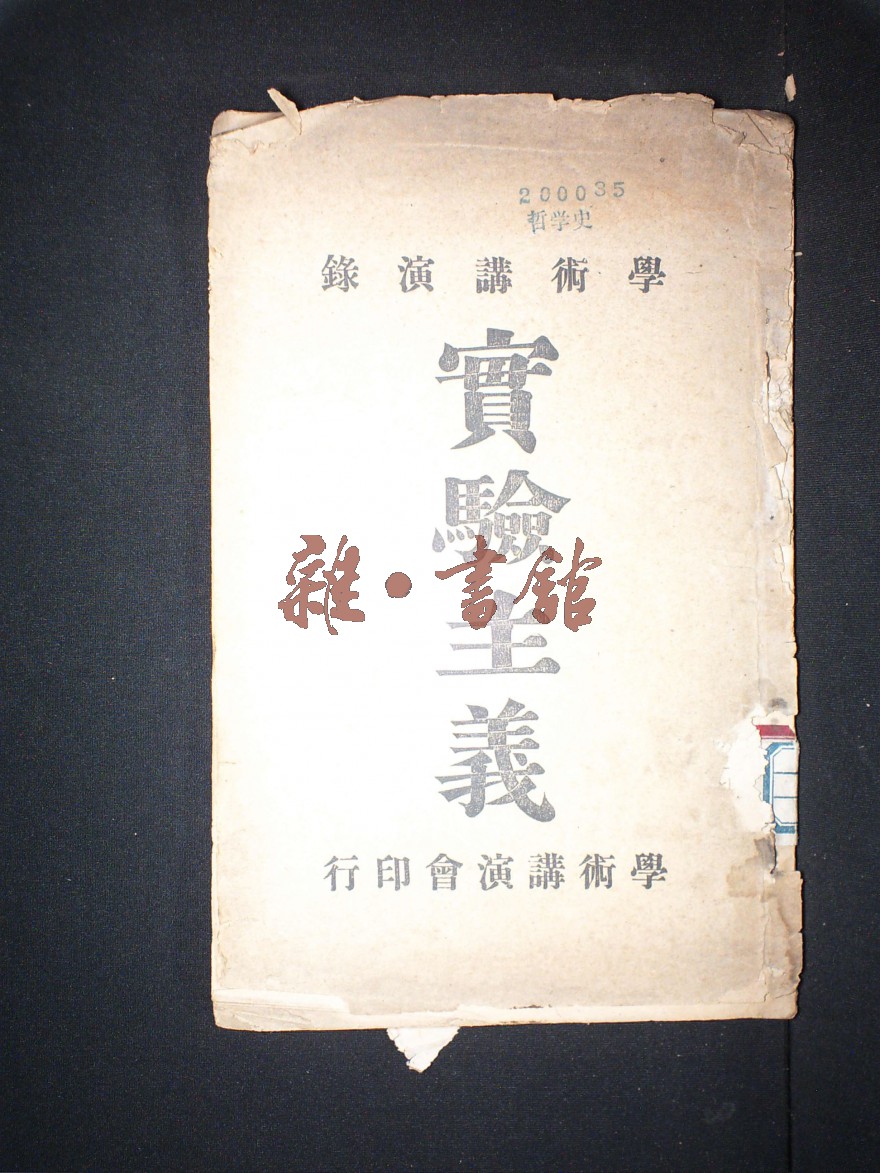 200035
哲学史
學術講演錄
實驗主義
雜·書館
學術講演會印行